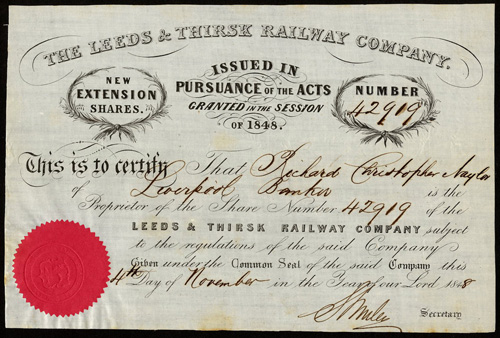 THE LEEDS & THIRSK RAILWAY COMPANY.
NEW EXTENSION SHARES.
ISSUED IN
PURSUANCE OF THE ACTS
GRANTED IN THE SESSION
OF 1848.
NUMBER
42919
This is to certify That Richard Christopher Naylor
of Liverpool Banker is the
Proprietor of the Share Number 42919 of the
LEEDS & THIRSK RAILWAY COMPANY subject
to the regulations of the said Company
Given under the Common Seal of the said Company this
4th Day of November in the Year of our Lord 1848
Secretary